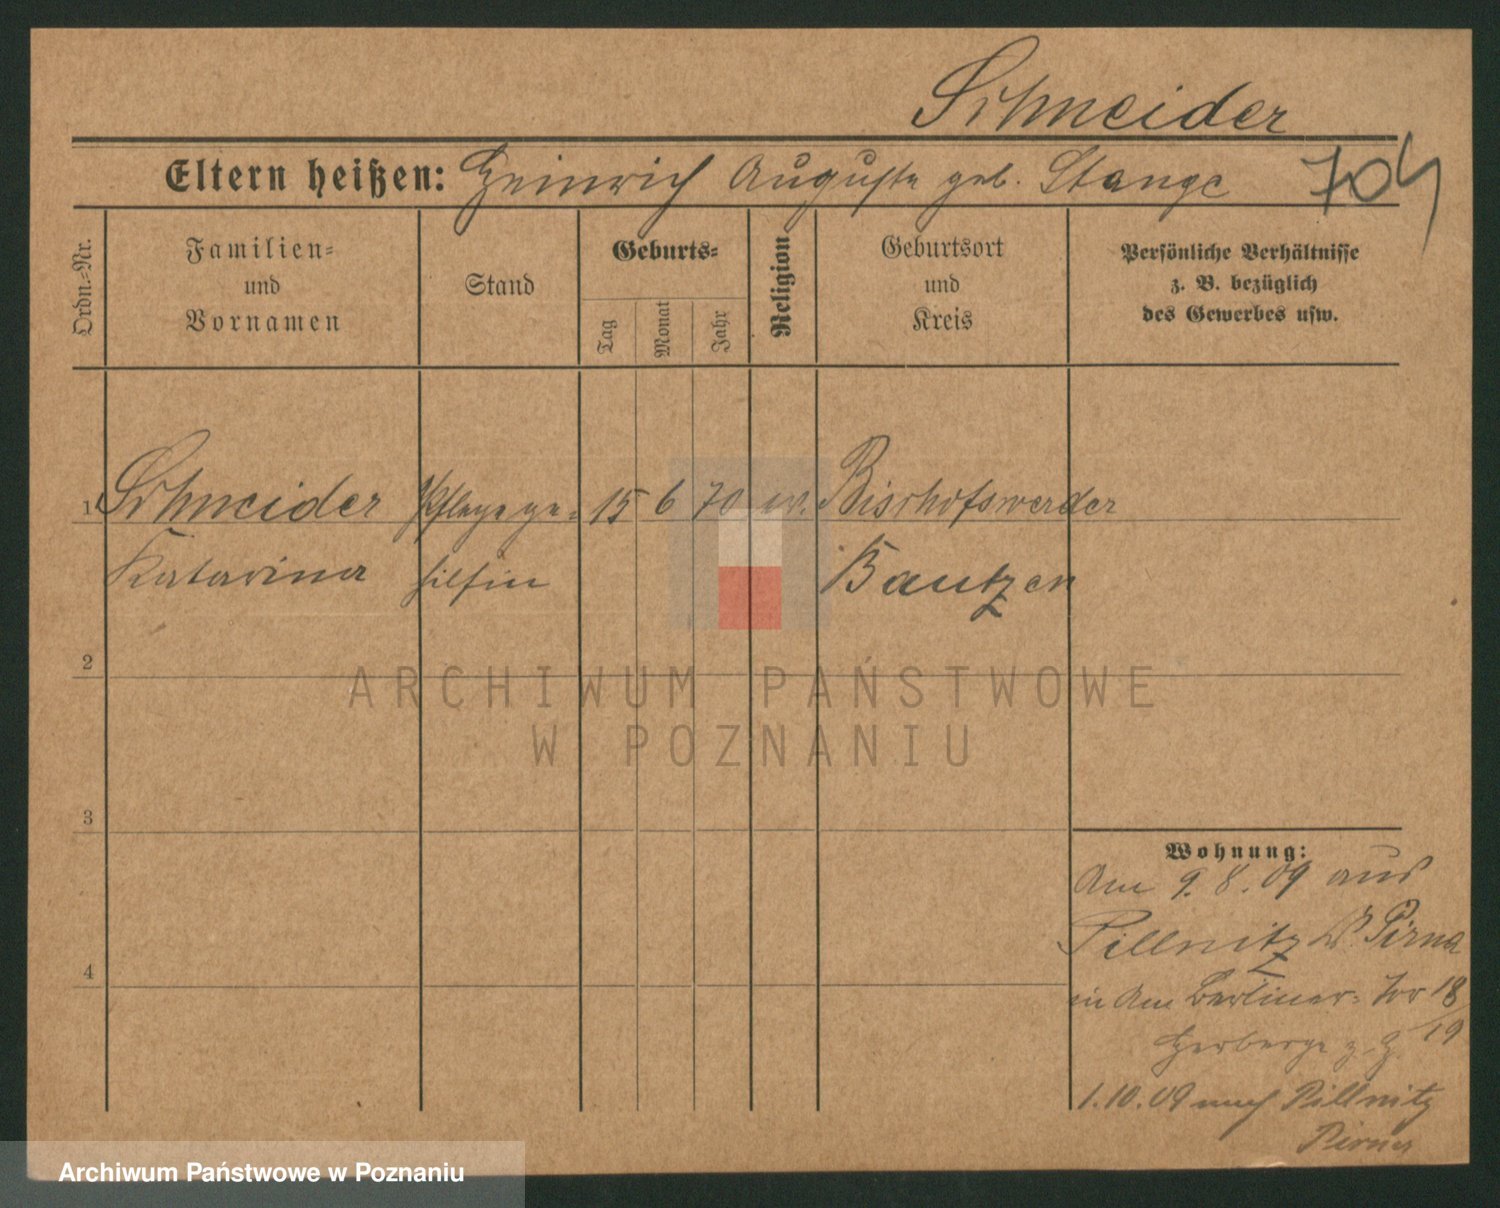 Schneider
Eltern heißen: Heinrich Auguste geb. Stange 704
Ordn.-Nr.
Familien- und Vornamen
Stand
Geburts-
Tag
Monat
Jahr
Religion
Geburtsort und Kreis
Persönliche Verhältnisse
z. B. bezüglich
des Gewerbes usw.
1 Schneider Pflegege- 15 6 70 ev. Bischofswerder
Katarina hilfin Bautzen
2
ARCHIWUM PAŃSTWOWE
W POZNANIU
3
Wohnung:
Am 9.8.09 aus
Pillnitz Pirna
4
in Am Berliner-Tor 18/19
Herberge z. H.
1.10.09 nach Pillnitz
Pirna
Archiwum Państwowe w Poznaniu